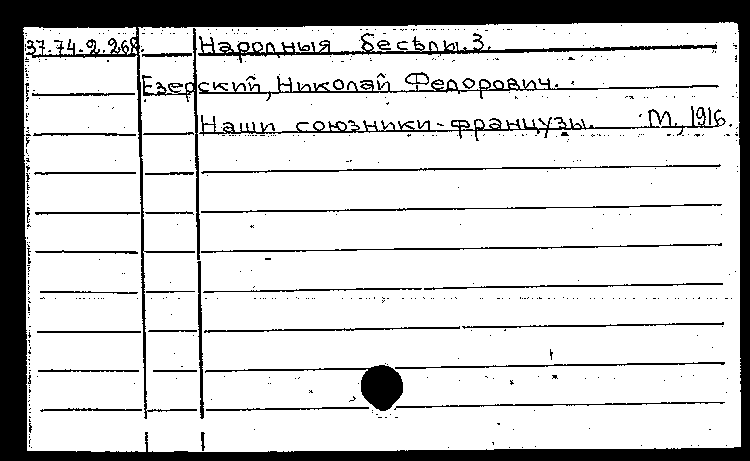 37.74.2.268. Народныя бесѣды.3.
Езерский, Николай Федорович.
Наши союзники-французы. М., 1916.